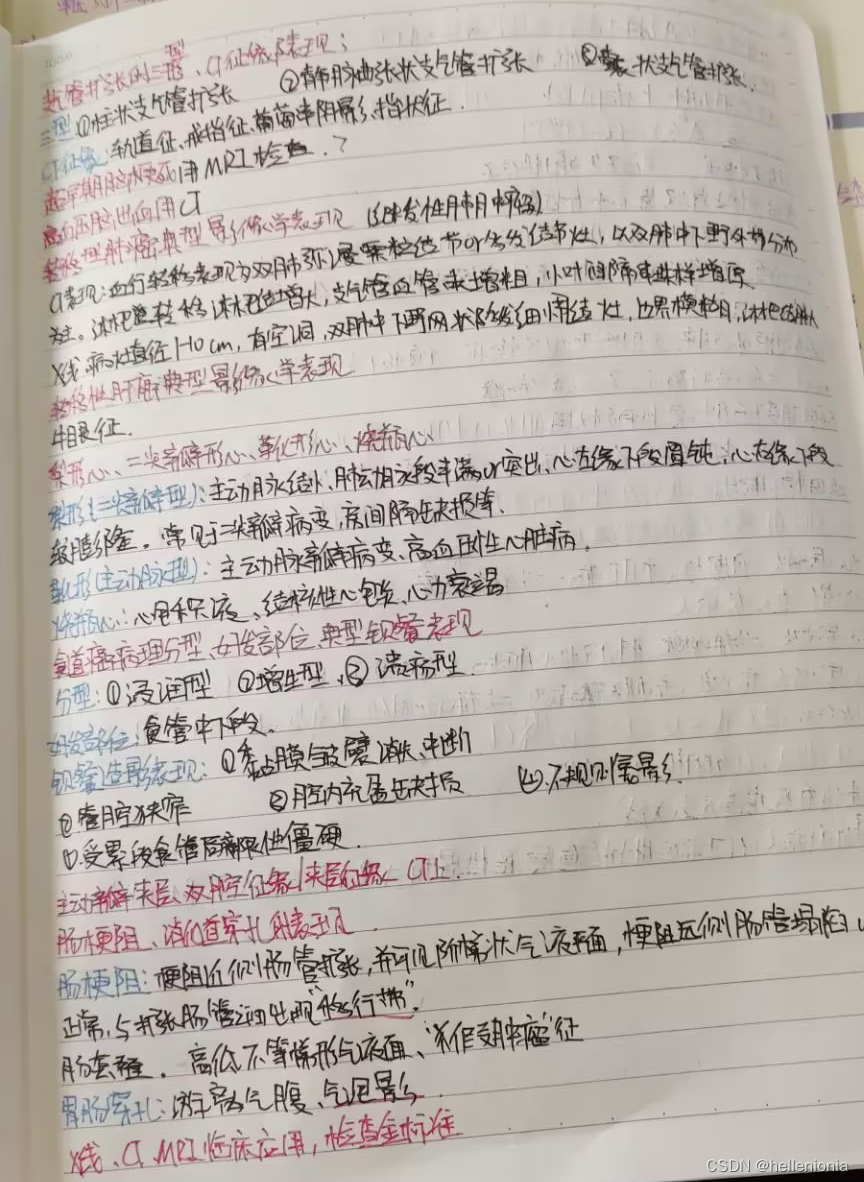 支气管扩张的三型、CT征象表现:
三型①柱状支气管扩张 ②静脉曲张状支气管扩张 ③囊状支气管扩张.
CT征象:轨道征、戒指征、葡萄串阴影、指状征.
超早期脑梗死用MRI检查.?
高血压脑出血用CT
转移型肺癌典型影像学表现 (继发性肺肿瘤)
CT表现:血行转移表现为双肺弥漫粟粒结节or多发结节灶,以双肺中下野外带分布
为主。淋巴道转移:淋巴结增大,支气管血管束增粗,小叶间隔串珠样增厚
X线.病灶直径1-10cm,有空洞,双肺中下野网状多发细小结灶,边界模糊,淋巴结肿大
转移性肝癌典型影像学表现
牛眼征.
梨形心、二尖瓣形心、靴形心、烧瓶心
梨形心(二尖瓣型):主动脉结小、肺动脉段丰满or突出、心左缘下段圆钝,心右缘下段
膨隆。常见于二尖瓣病变,房间隔缺损等.
靴形(主动脉型):主动脉瓣病变、高血压性心脏病.
烧瓶心:心包积液、结核性心包炎、心力衰竭
食道癌病理分型、好发部位、典型钡餐表现
分型:①浸润型 ②增生型、③溃疡型.
好发部位:食管中下段.
钡餐造影表现:①黏膜皱襞消失、中断
②管腔狭窄 ③腔内充盈缺损 ④不规则龛影.
受累段食管局部僵硬.
主动脉夹层、双腔征象/夹层征象 CT上.
肠梗阻、消化道穿孔 表现
肠梗阻:梗阻近侧肠管扩张,并可见阶梯状气液平面,梗阻远侧肠管塌陷
正常,与扩张肠管之间出现"移行带".
肠套叠.高低不等梯形气液面、"假肿瘤"征
胃肠穿孔:游离气腹、
X线、CT、MRI临床应用,检查金标准
CSDN @hellenionia